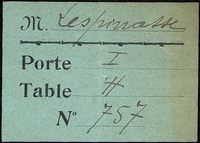 M. Lespinasse
Porte I
Table H
N° 757